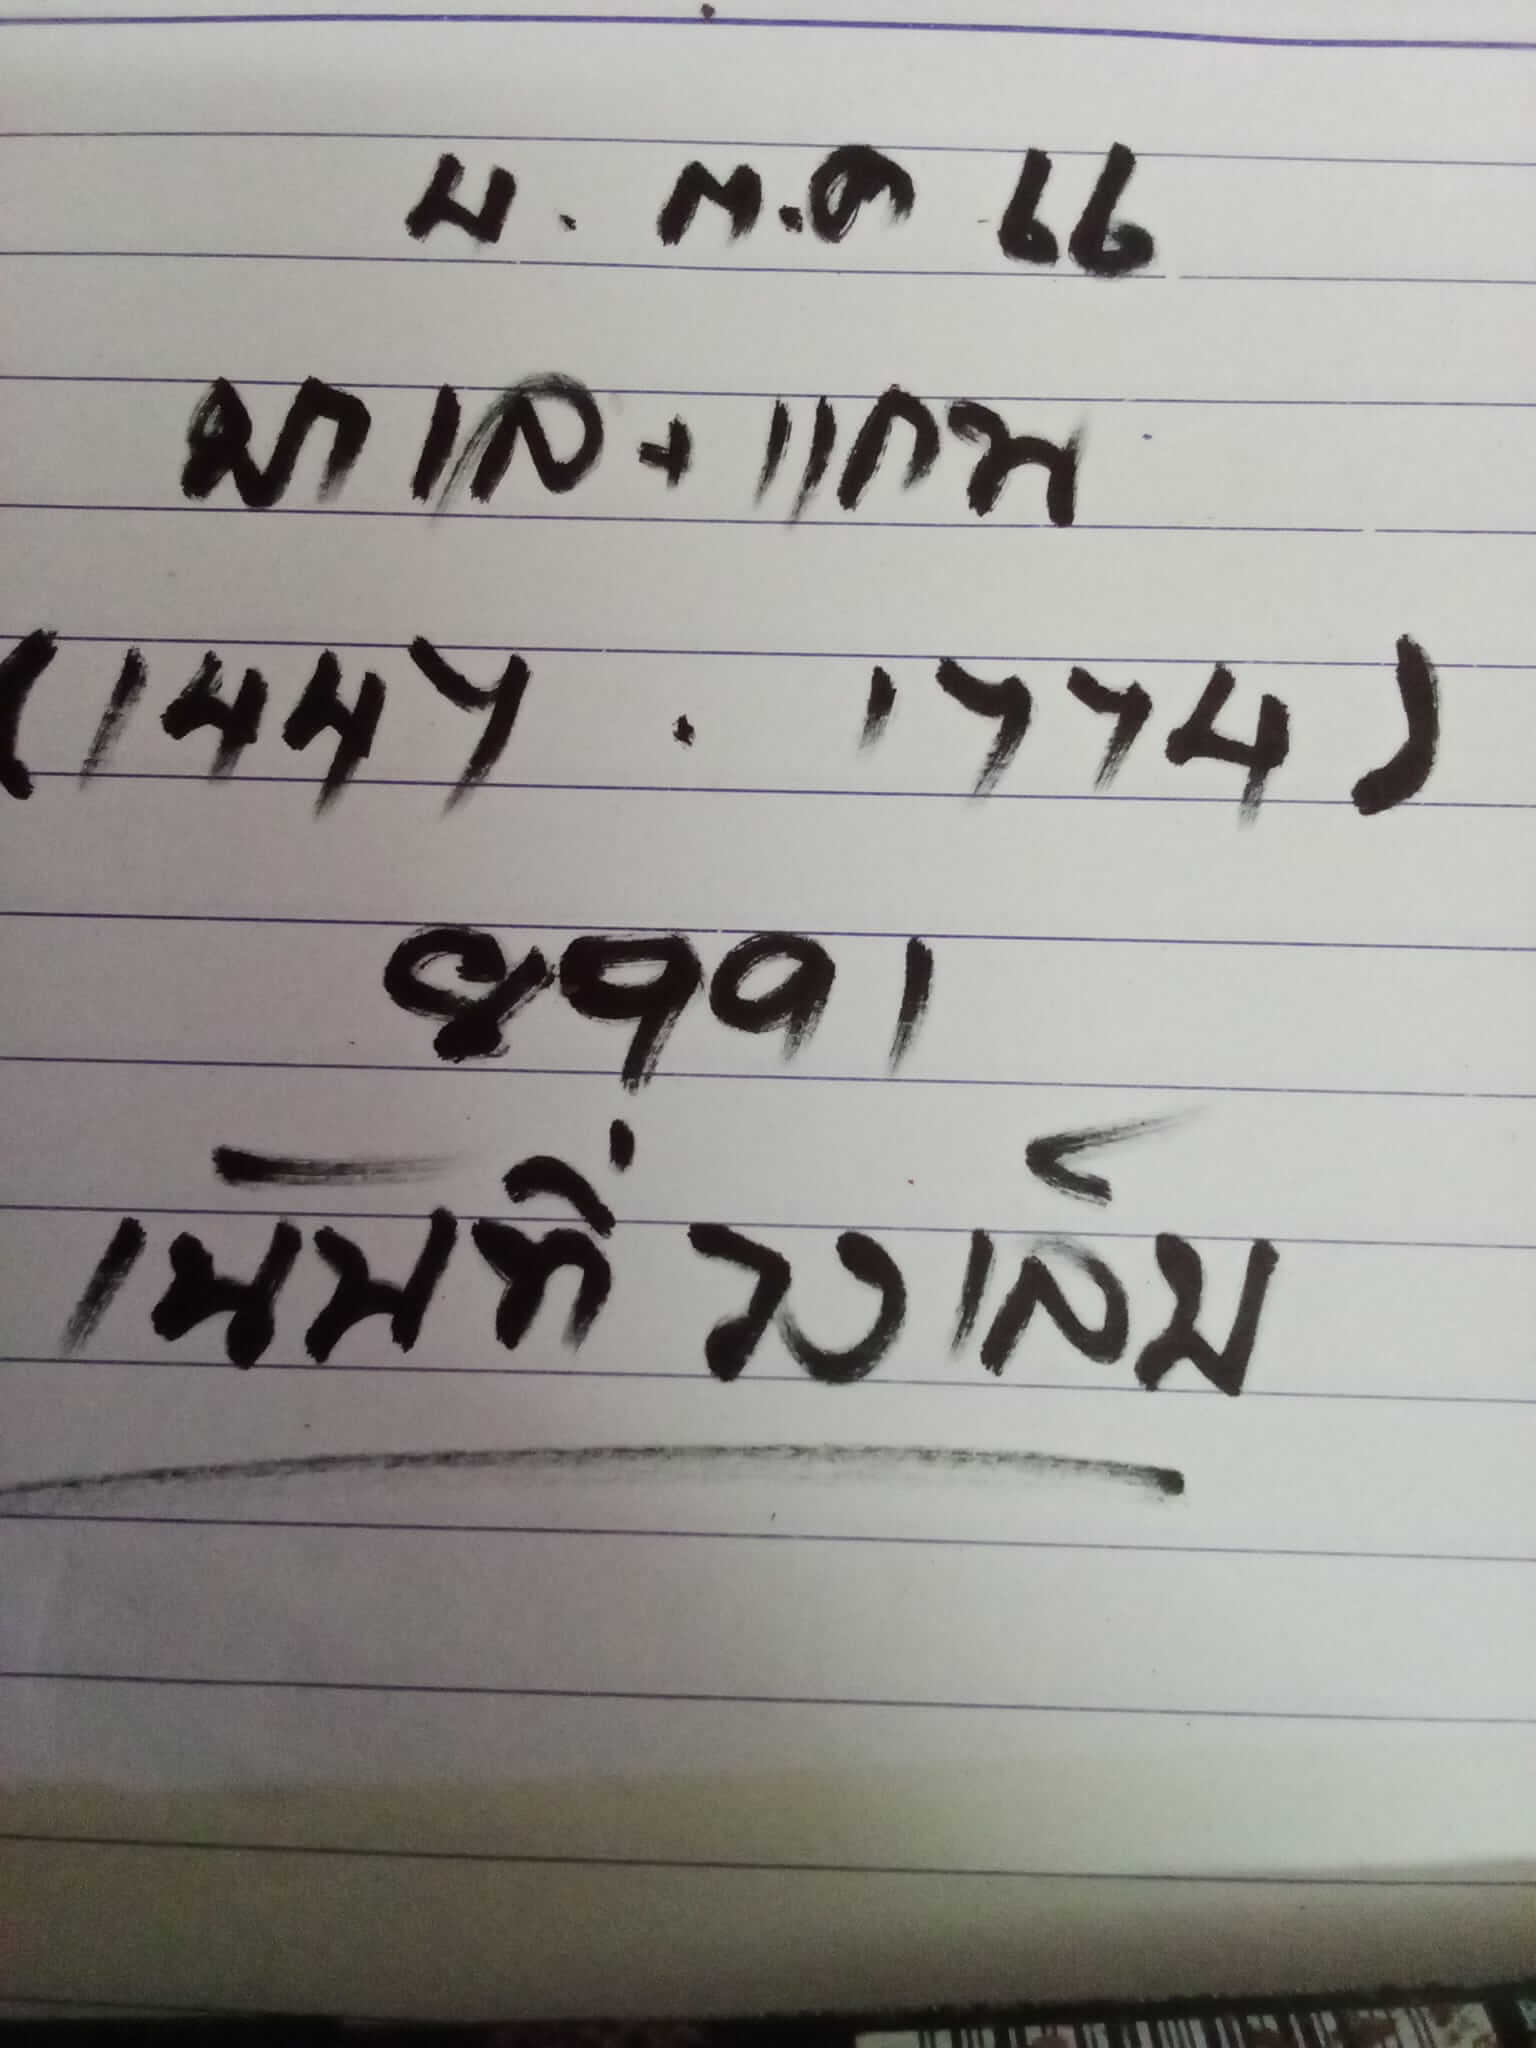 น. พ.ค 66
มาเล + แถม
(1447 . 1774)
8991
เน้นที่ วงเล็บ